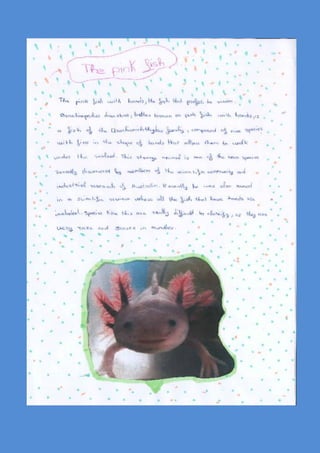 The pink fish
The pink fish with hands, the fish that prefers to swim.
pink fish with hands, is
a fish of the family, composed of nine species
with fins in the shape of hands that allow them to walk
under the seabed. This strange animal is one of the new species
recently discovered by members of the scientific community and
industrial research of Australia. Recently he was also named
in a scientific review where all the fish that have hands are
included. Species like this are really difficult to classify, as they are
very rare and scarce in number.